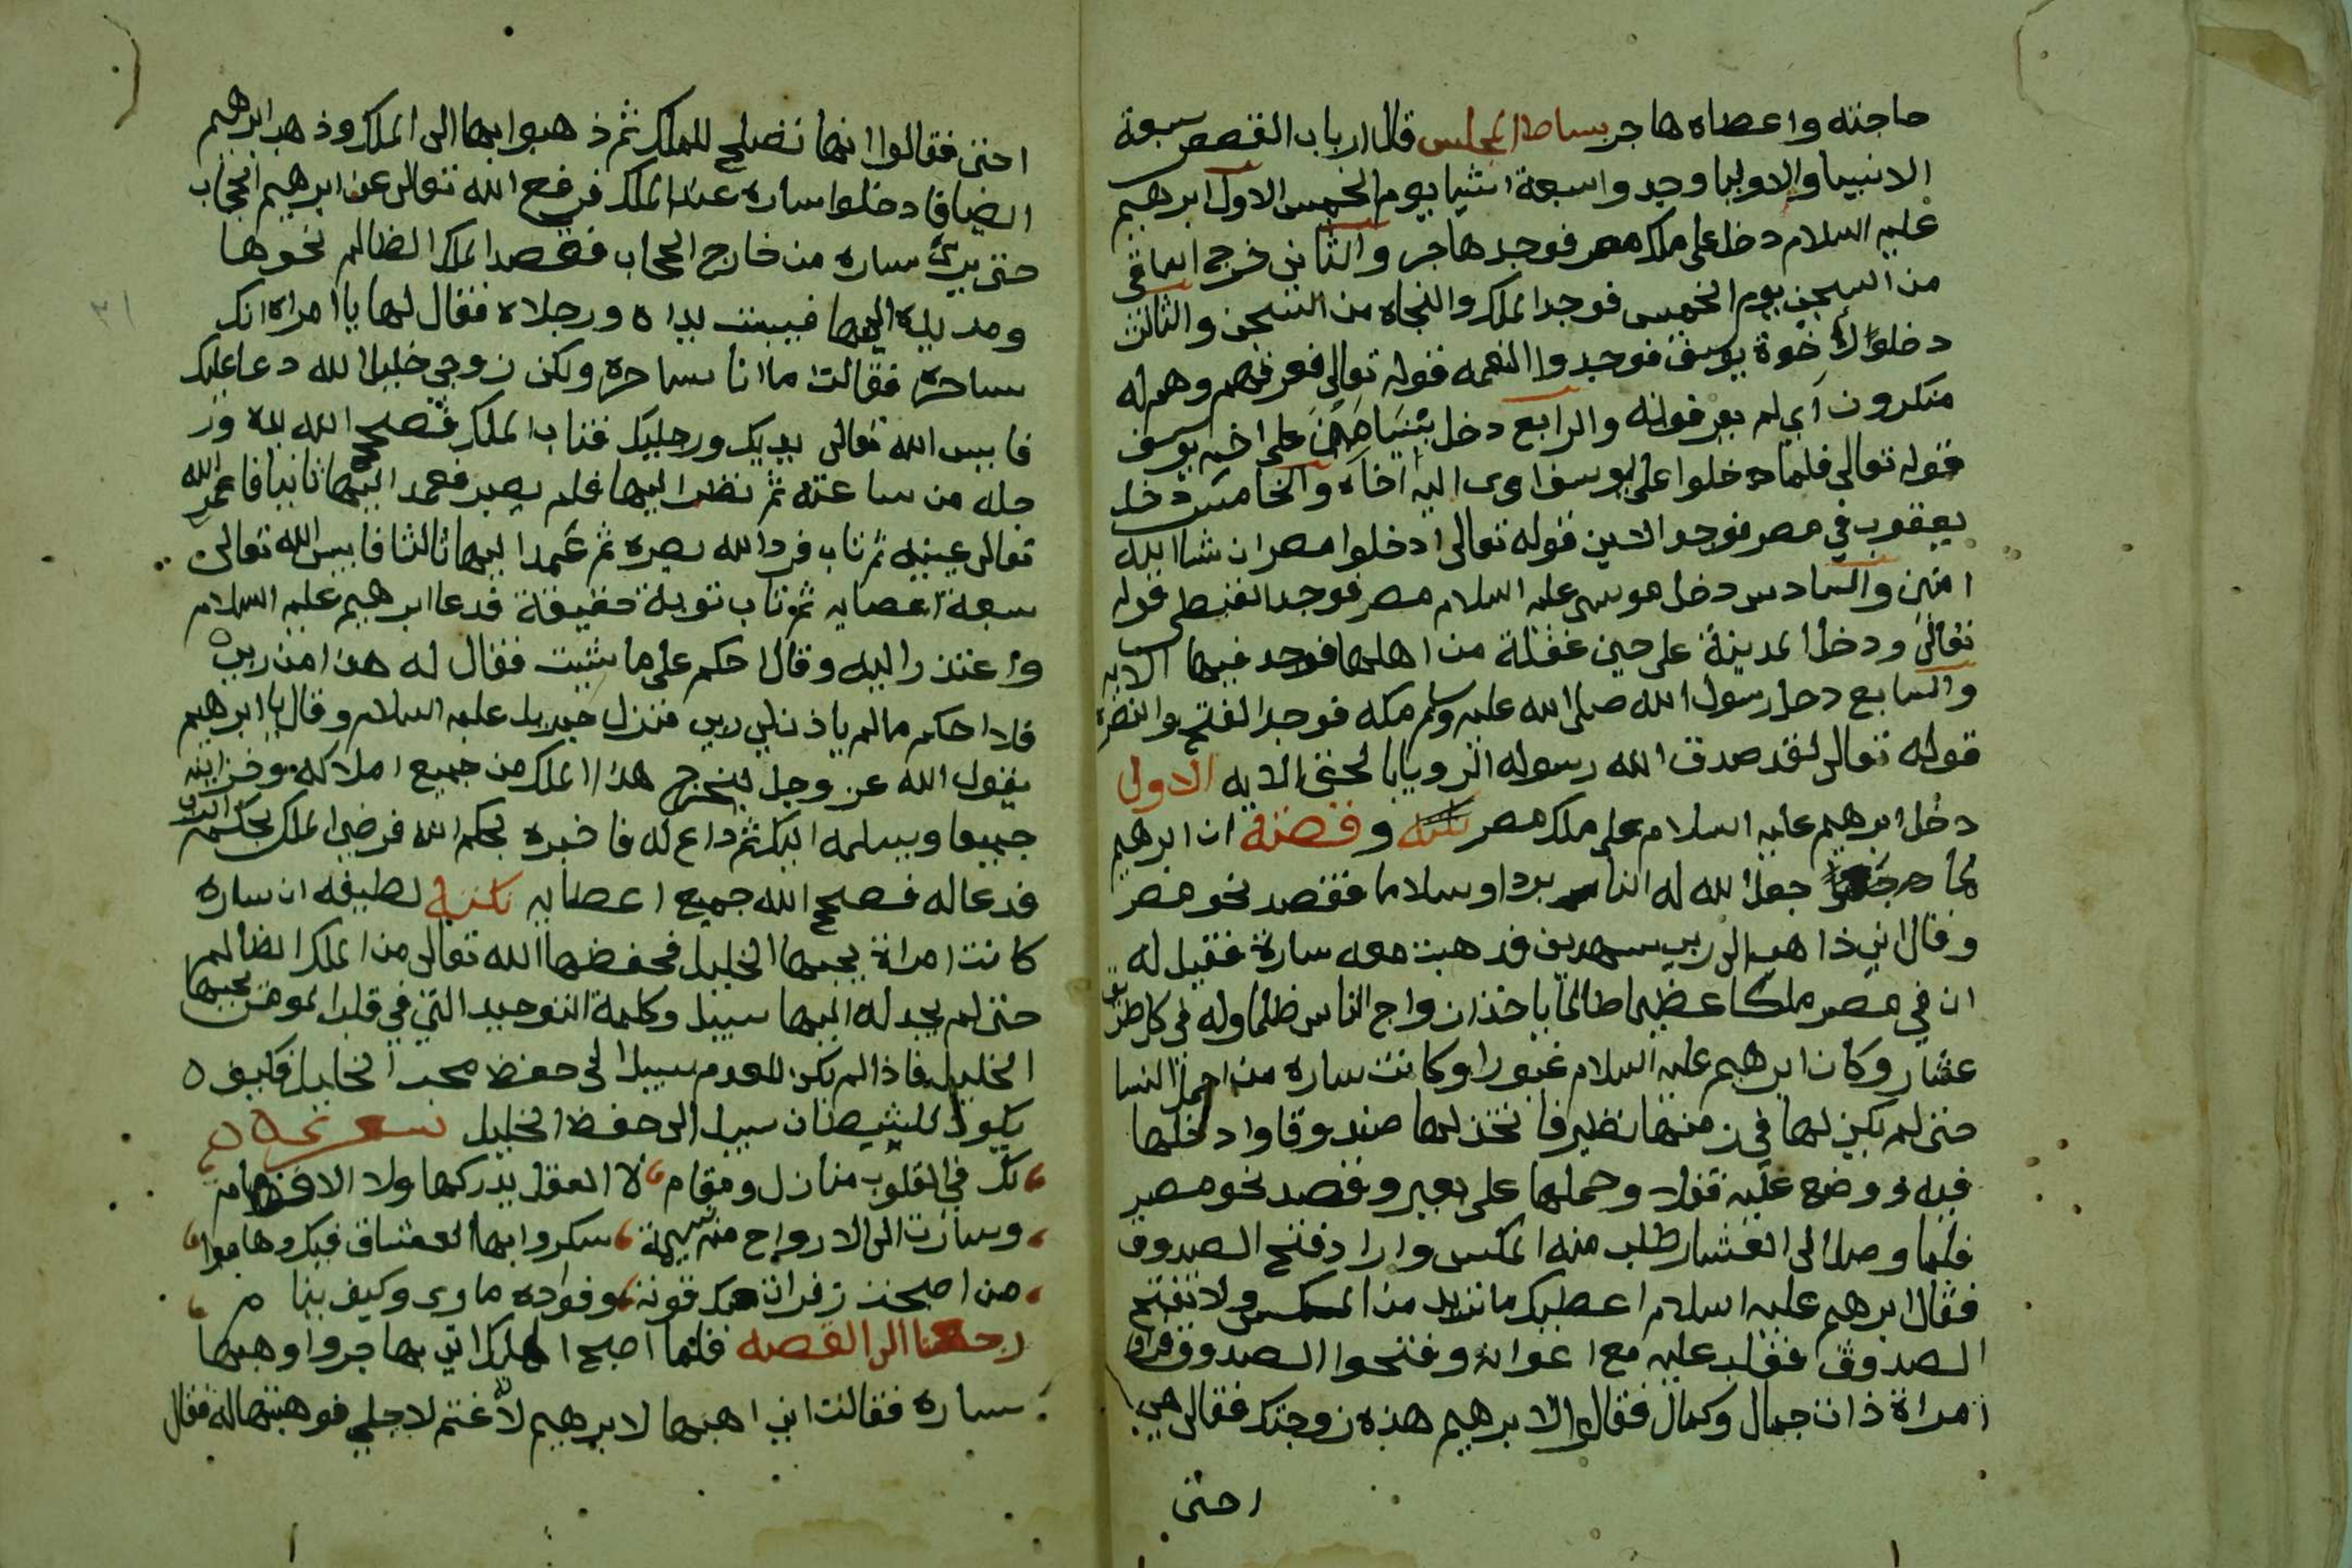 حاجته واعطاه هاجر بساط المجلس قال ارباب القصص سبعة
الانبيا والاوليا وجدوا سبعة اشيا يوم الخميس الاول ابرهيم
عليه السلام دخل على ملك مصر فوجد هاجر والثاني خرج الساقي
من السجن يوم الخميس فوجد الملك والنجاه من السجن والثالث
دخلوا لأخوة يوسف فوجدوا النعمه قوله تعالى فعرفهم وهم له
منكرون اي لم يعرفونه والرابع دخل بنيامين على اخيه يوسف
قوله تعالى فلما دخلوا على يوسف اوى اليه اخاه والخامس دخل
يعقوب في مصر فوجد الامن قوله تعالى ادخلوا مصر ان شا الله
امنين والسادس دخل موسى عليه السلام مصر فوجد القبطي قوله
تعالى ودخل المدينة على حين غفلة من اهلها فوجد فيها الايه
والسابع دخل رسول الله صلى الله عليه وسلم مكه فوجد الفتح والنصره
قوله تعالى لقد صدق الله رسوله الرويا بالحق الايه الاولى
دخل ابرهيم عليه السلام على ملك مصر نكته وقصته ان ابرهيم
لما جعل الله له النار بردا وسلاما فقصد نحو مصر
وقال اني ذاهب الى ربي سيهدين فذهبت معه سارة فقيل له
ان في مصر ملكا عظيما ظالما ياخذ ازواج الناس ظلما وله في كل طريق
عشار وكان ابرهيم عليه السلام غيورا وكانت ساره من اجمل النسا
حتى لم يكن لها في زمنها نظير فاتخذ لها صندوقا وادخلها
فيه ووضع عليه قفلا وحملها على بعير وقصد نحو مصر
فلما وصل الى العشار طلب منه المكس واراد فتح الصدوق
فقال ابرهيم عليه السلام اعطيك ما تريد من المكس ولا تفتح
الصدوق فغلب عليه مع اعوانه وفتحوا الصدوق فراوا
امراة ذات جمال وكمال فقالوا لابرهيم هذه زوجتك فقال هي
احتى
احتى فقالوا انها تصلح للملك ثم ذهبوا بها الى الملك وذهب ابرهيم
ايضا فادخلوا ساره عند الملك فرفع الله تعالى عن ابرهيم الحجاب
حتى يرى ساره من خارج الحجاب فقصد الملك الظالم نحوها
ومد يده اليها فيبست يداه ورجلاه فقال لها يا امراه انك
ساحره فقالت ما انا ساحره ولكن زوجي خليل الله دعا عليك
فايبس الله تعالى يديك ورجليك فتاب الملك فصلح الله يده ور
جله من ساعته ثم نظر اليها فلم يصبر فعمد اليها ثانيا فاعمى الله
تعالى عينيه ثم تاب فرد الله بصره ثم عمد اليها ثالثا فايبس الله تعالى
سبعة اعضايه ثم تاب توبة حقيقة فدعا ابرهيم عليه السلام
واعتذر اليه وقال احكم على ما شيت فقال له هذا من ربي
فلا احكم ما لم ياذن لي ربي فنزل جبريل عليه السلام وقال يا ابرهيم
يقول الله عز وجل ليخرج هذا الملك من جميع املاكه وخزاينه
جميعا ويسلمه اليك ثم ادع له فاخبره بحكم الله فرضي الملك بحكمه
فدعا له فصلح الله جميع اعضايه نكتة لطيفه ان ساره
كانت امراة يحبها الخليل فحفظها الله تعالى من الملك الظالم
حتى لم يجد له اليها سبيل وكلمة التوحيد التي في قلب المومن يحبها
الخليل فاذا لم يكن للعدو سبيلا الى حفظ محب الخليل فكيف
يكون للشيطان سبيل الى حفظ الخليل شعر
لك في القلوب منازل ومقام لا العقل يدركها ولا الافهام
وسارت الى الارواح منه نسيمة سكروا بها العشاق فيك وهاموا
من اصبحت زفرات مقرونة وفواده ماوى وكيف ينام
رجعنا الى القصه فلما اصبح الملك اتى بهاجر واوهبها
ساره فقالت اني اهبها لابرهيم لانه غتم لاجلي فوهبتها له فقال